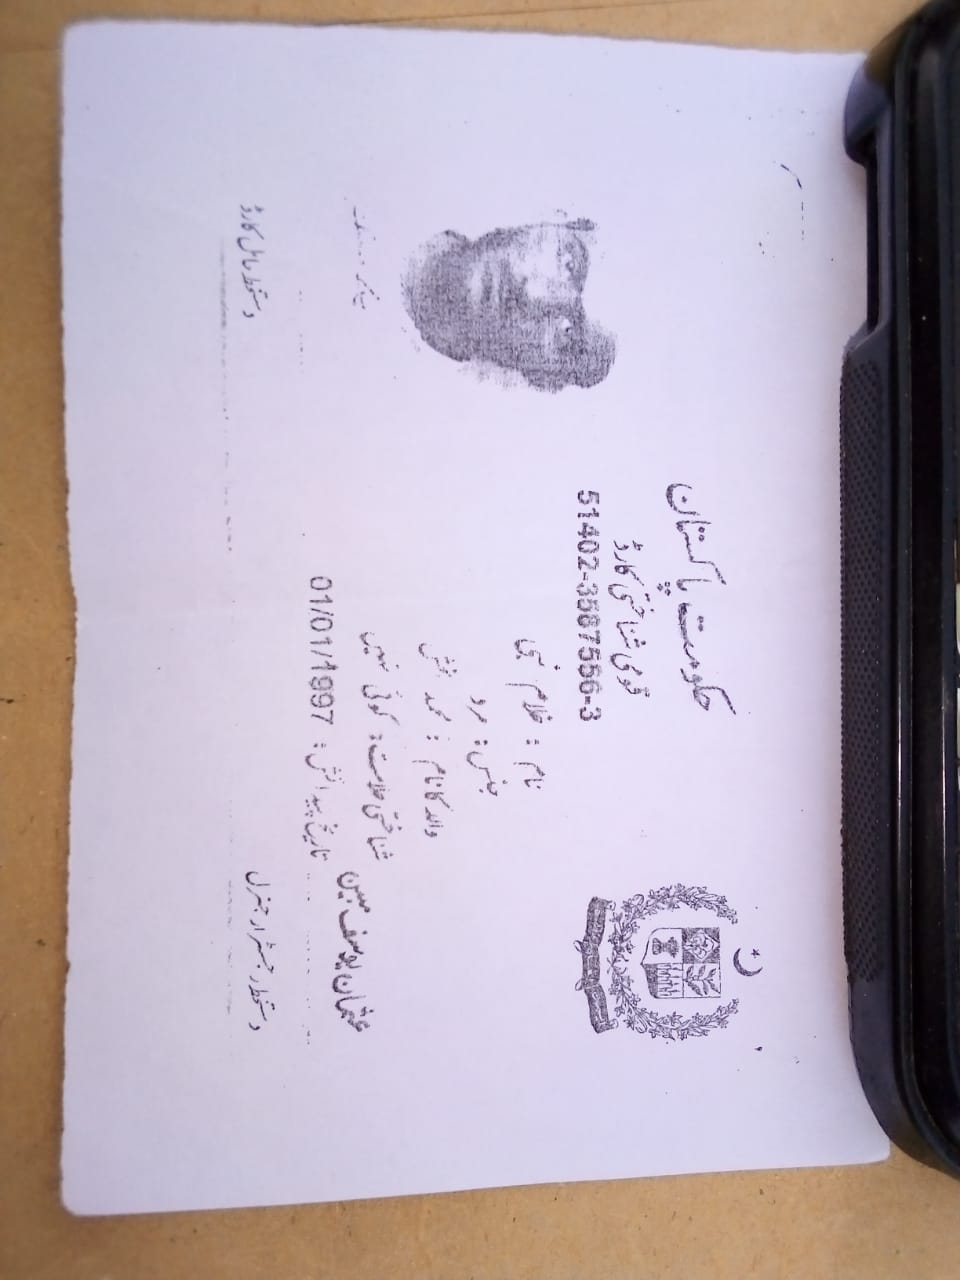 حکومت پاکستان
قومی شناختی کارڈ
51402-3587556-3
نام : غلام نبی
جنس : مرد
والد کا نام : محمد بخش
شناختی علامت : کوئی نہیں
تاریخ پیدائش : 01/01/1997
عثمان یوسف مبین
دستخط رجسٹرار جنرل
دستخط حامل کارڈ